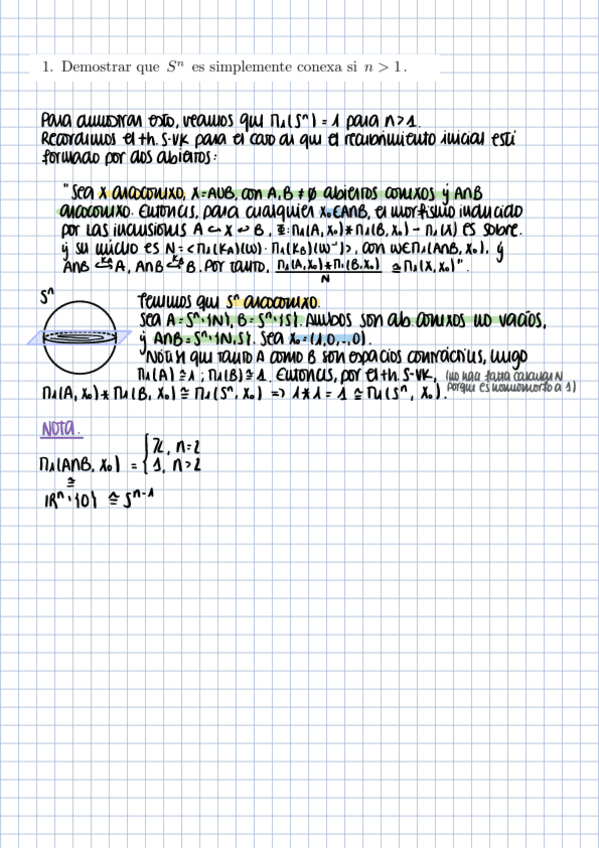 1. Demostrar que Sⁿ es simplemente conexa si n > 1.
Para demostrar esto, veamos que π₁(Sⁿ) = 1 para n>1.
Recordemos el th. S-VK para el caso en que el recubrimiento inicial está
formado por dos abiertos:
"Sea X arcoconexo, X=A∪B, con A,B ≠ ∅ abiertos conexos y A∩B
arcoconexo. Entonces, para cualquier x₀∈A∩B, el morfismo inducido
por las inclusiones A ↪ X ↩ B, Φ: π₁(A,x₀)*π₁(B,x₀) → π₁(X) es sobre.
y su núcleo es N = <π₁(K_A)(w)·π₁(K_B)(w⁻¹)>, con w∈π₁(A∩B, x₀), y
A∩B ↪ᴷᴬ A, A∩B ↪ᴷᴮ B. Por tanto, π₁(A,x₀)*π₁(B,x₀) / N ≅ π₁(X,x₀)".
Sⁿ
Tenemos que Sⁿ arcoconexo.
Sea A = Sⁿ∖{N}, B = Sⁿ∖{S}. Ambos son ab. conexos no vacíos,
y A∩B = Sⁿ∖{N,S}. Sea x₀ = (1,0,..,0).
Notar que tanto A como B son espacios contráctiles, luego
π₁(A) ≅ 1 ; π₁(B) ≅ 1. Entonces, por el th. S-VK, (no hace falta calcular N
π₁(A, x₀) * π₁(B, x₀) ≅ π₁(Sⁿ, x₀) => 1*1 = 1 ≅ π₁(Sⁿ, x₀). porque es homomorfo a 1)
Nota.
π₁(A∩B, x₀) = { ℤ, n=2
1, n>2
≅
ℝⁿ∖{0} ≅ Sⁿ⁻¹